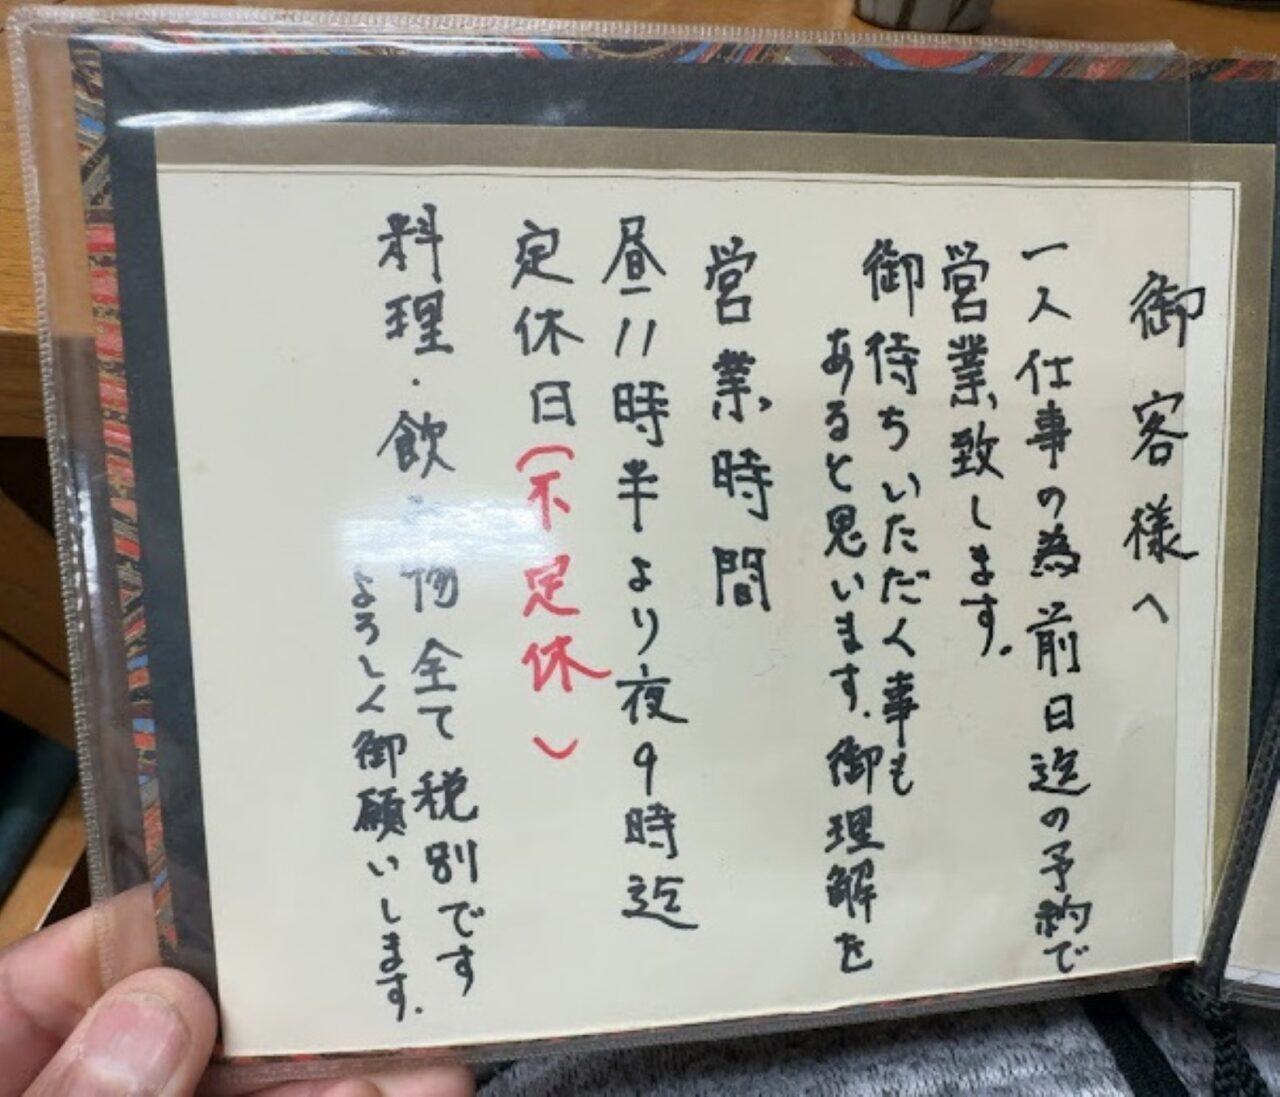 御客様へ
一人仕事の為前日迄の予約で
営業致します。
御待ちいただく事も
あると思います。御理解を
営業時間
昼11時半より夜9時迄
定休日(不定休)
料理・飲み物全て税別です
よろしく御願いします。